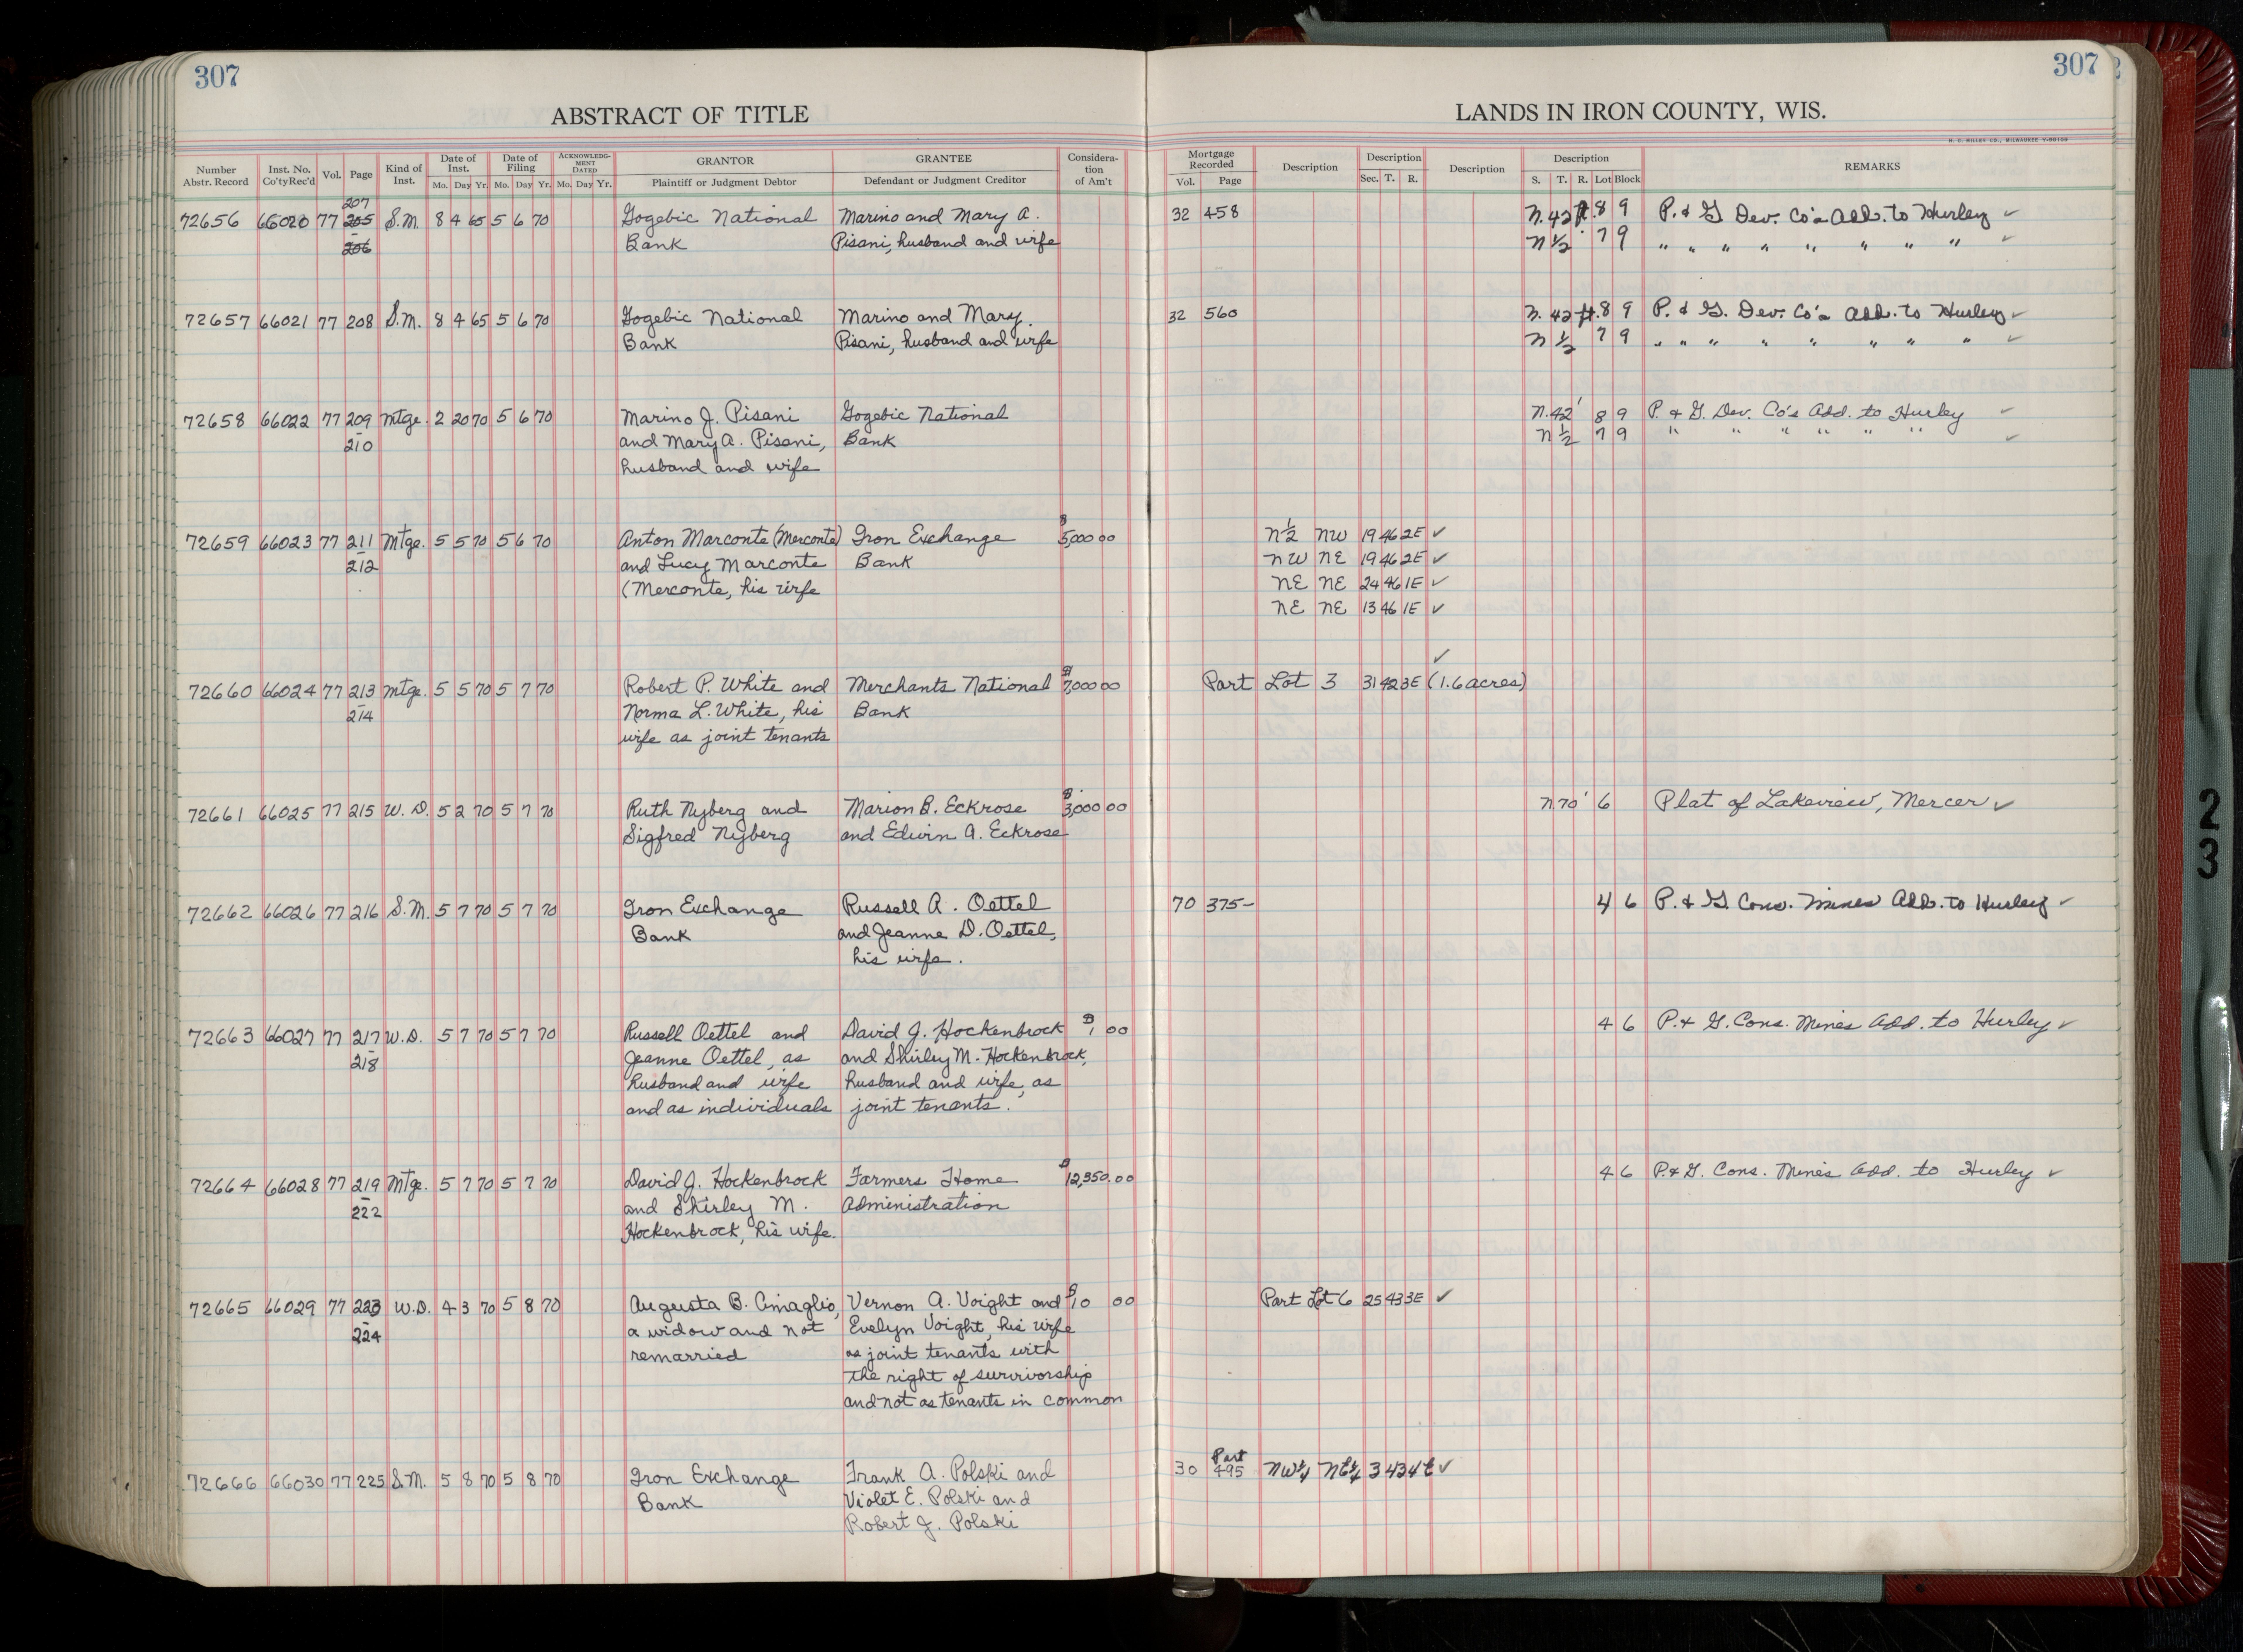 307
307
ABSTRACT OF TITLE
LANDS IN IRON COUNTY, WIS.
H. C. MILLER CO., MILWAUKEE
Number Abstr. Record | Inst. No. Co'ty Rec'd | Vol. | Page | Kind of Inst. | Date of Inst. Mo. Day Yr. | Date of Filing Mo. Day Yr. | ACKNOWLEDGMENT DATED Mo. Day Yr. | GRANTOR Plaintiff or Judgment Debtor | GRANTEE Defendant or Judgment Creditor | Consideration of Am't | Mortgage Recorded Vol. Page | Description | Description Sec. T. R. | Description | Description S. T. R. Lot Block | REMARKS
207
72656 66020 77 205 S.M. 8 4 65 5 6 70 Gogebic National Marino and Mary A. 32 458 N. 42 ft. 8 9 P. & G Dev. Co's Add. to Hurley ✓
206 Bank Pisani, husband and wife N 1/2 7 9 " " " " " " " " ✓
72657 66021 77 208 S.M. 8 4 65 5 6 70 Gogebic National Marino and Mary 32 560 N. 42 ft. 8 9 P. & G. Dev. Co's Add. to Hurley ✓
Bank Pisani, husband and wife N 1/2 7 9 " " " " " " " " ✓
72658 66022 77 209 Mtge. 2 20 70 5 6 70 Marino J. Pisani Gogebic National N. 42' 8 9 P. & G. Dev. Co's Add. to Hurley ✓
210 and Mary A. Pisani, Bank N 1/2 7 9 " " " " " " ✓
husband and wife
72659 66023 77 211 Mtge. 5 5 70 5 6 70 Anton Marconte (Merconte) Iron Exchange $5,000 00 N 1/2 NW 19 46 2E ✓
212 and Lucy Marconte Bank NW NE 19 46 2E ✓
(Merconte, his wife NE NE 24 46 1E ✓
NE NE 13 46 1E ✓
✓
72660 66024 77 213 Mtge. 5 5 70 5 7 70 Robert P. White and Merchants National $7,000 00 Part Lot 3 31 42 3E (1.6 acres)
214 Norma L. White, his Bank
wife as joint tenants
72661 66025 77 215 W. D. 5 2 70 5 7 70 Ruth Nyberg and Marion B. Eckrose $3,000 00 N 70' 6 Plat of Lakeview, Mercer ✓
Sigfred Nyberg and Edwin A. Eckrose
72662 66026 77 216 S.M. 5 7 70 5 7 70 Iron Exchange Russell A. Oettel 70 375- 4 6 P. & G. Cons. Mines Add. to Hurley ✓
Bank and Jeanne D. Oettel,
his wife.
72663 66027 77 217 W.D. 5 7 70 5 7 70 Russell Oettel and David J. Hockenbrock $1 00 4 6 P. & G. Cons. Mines Add. to Hurley ✓
218 Jeanne Oettel, as and Shirley M. Hockenbrock,
husband and wife husband and wife, as
and as individuals joint tenants.
72664 66028 77 219 Mtge. 5 7 70 5 7 70 David J. Hockenbrock Farmers Home $12,350.00 4 6 P. & G. Cons. Mines Add. to Hurley ✓
222 and Shirley M. Administration
Hockenbrock, his wife.
72665 66029 77 223 W.D. 4 3 70 5 8 70 Augusta B. Cimaglio, Vernon A. Voight and $10 00 Part Lot 6 25 43 3E ✓
224 a widow and not Evelyn Voight, his wife
remarried as joint tenants with
the right of survivorship
and not as tenants in common
Part
72666 66030 77 225 S.M. 5 8 70 5 8 70 Iron Exchange Frank A. Polski and 30 495 NW¼ NE¼ 3 43 4E ✓
Bank Violet E. Polski and
Robert J. Polski
23